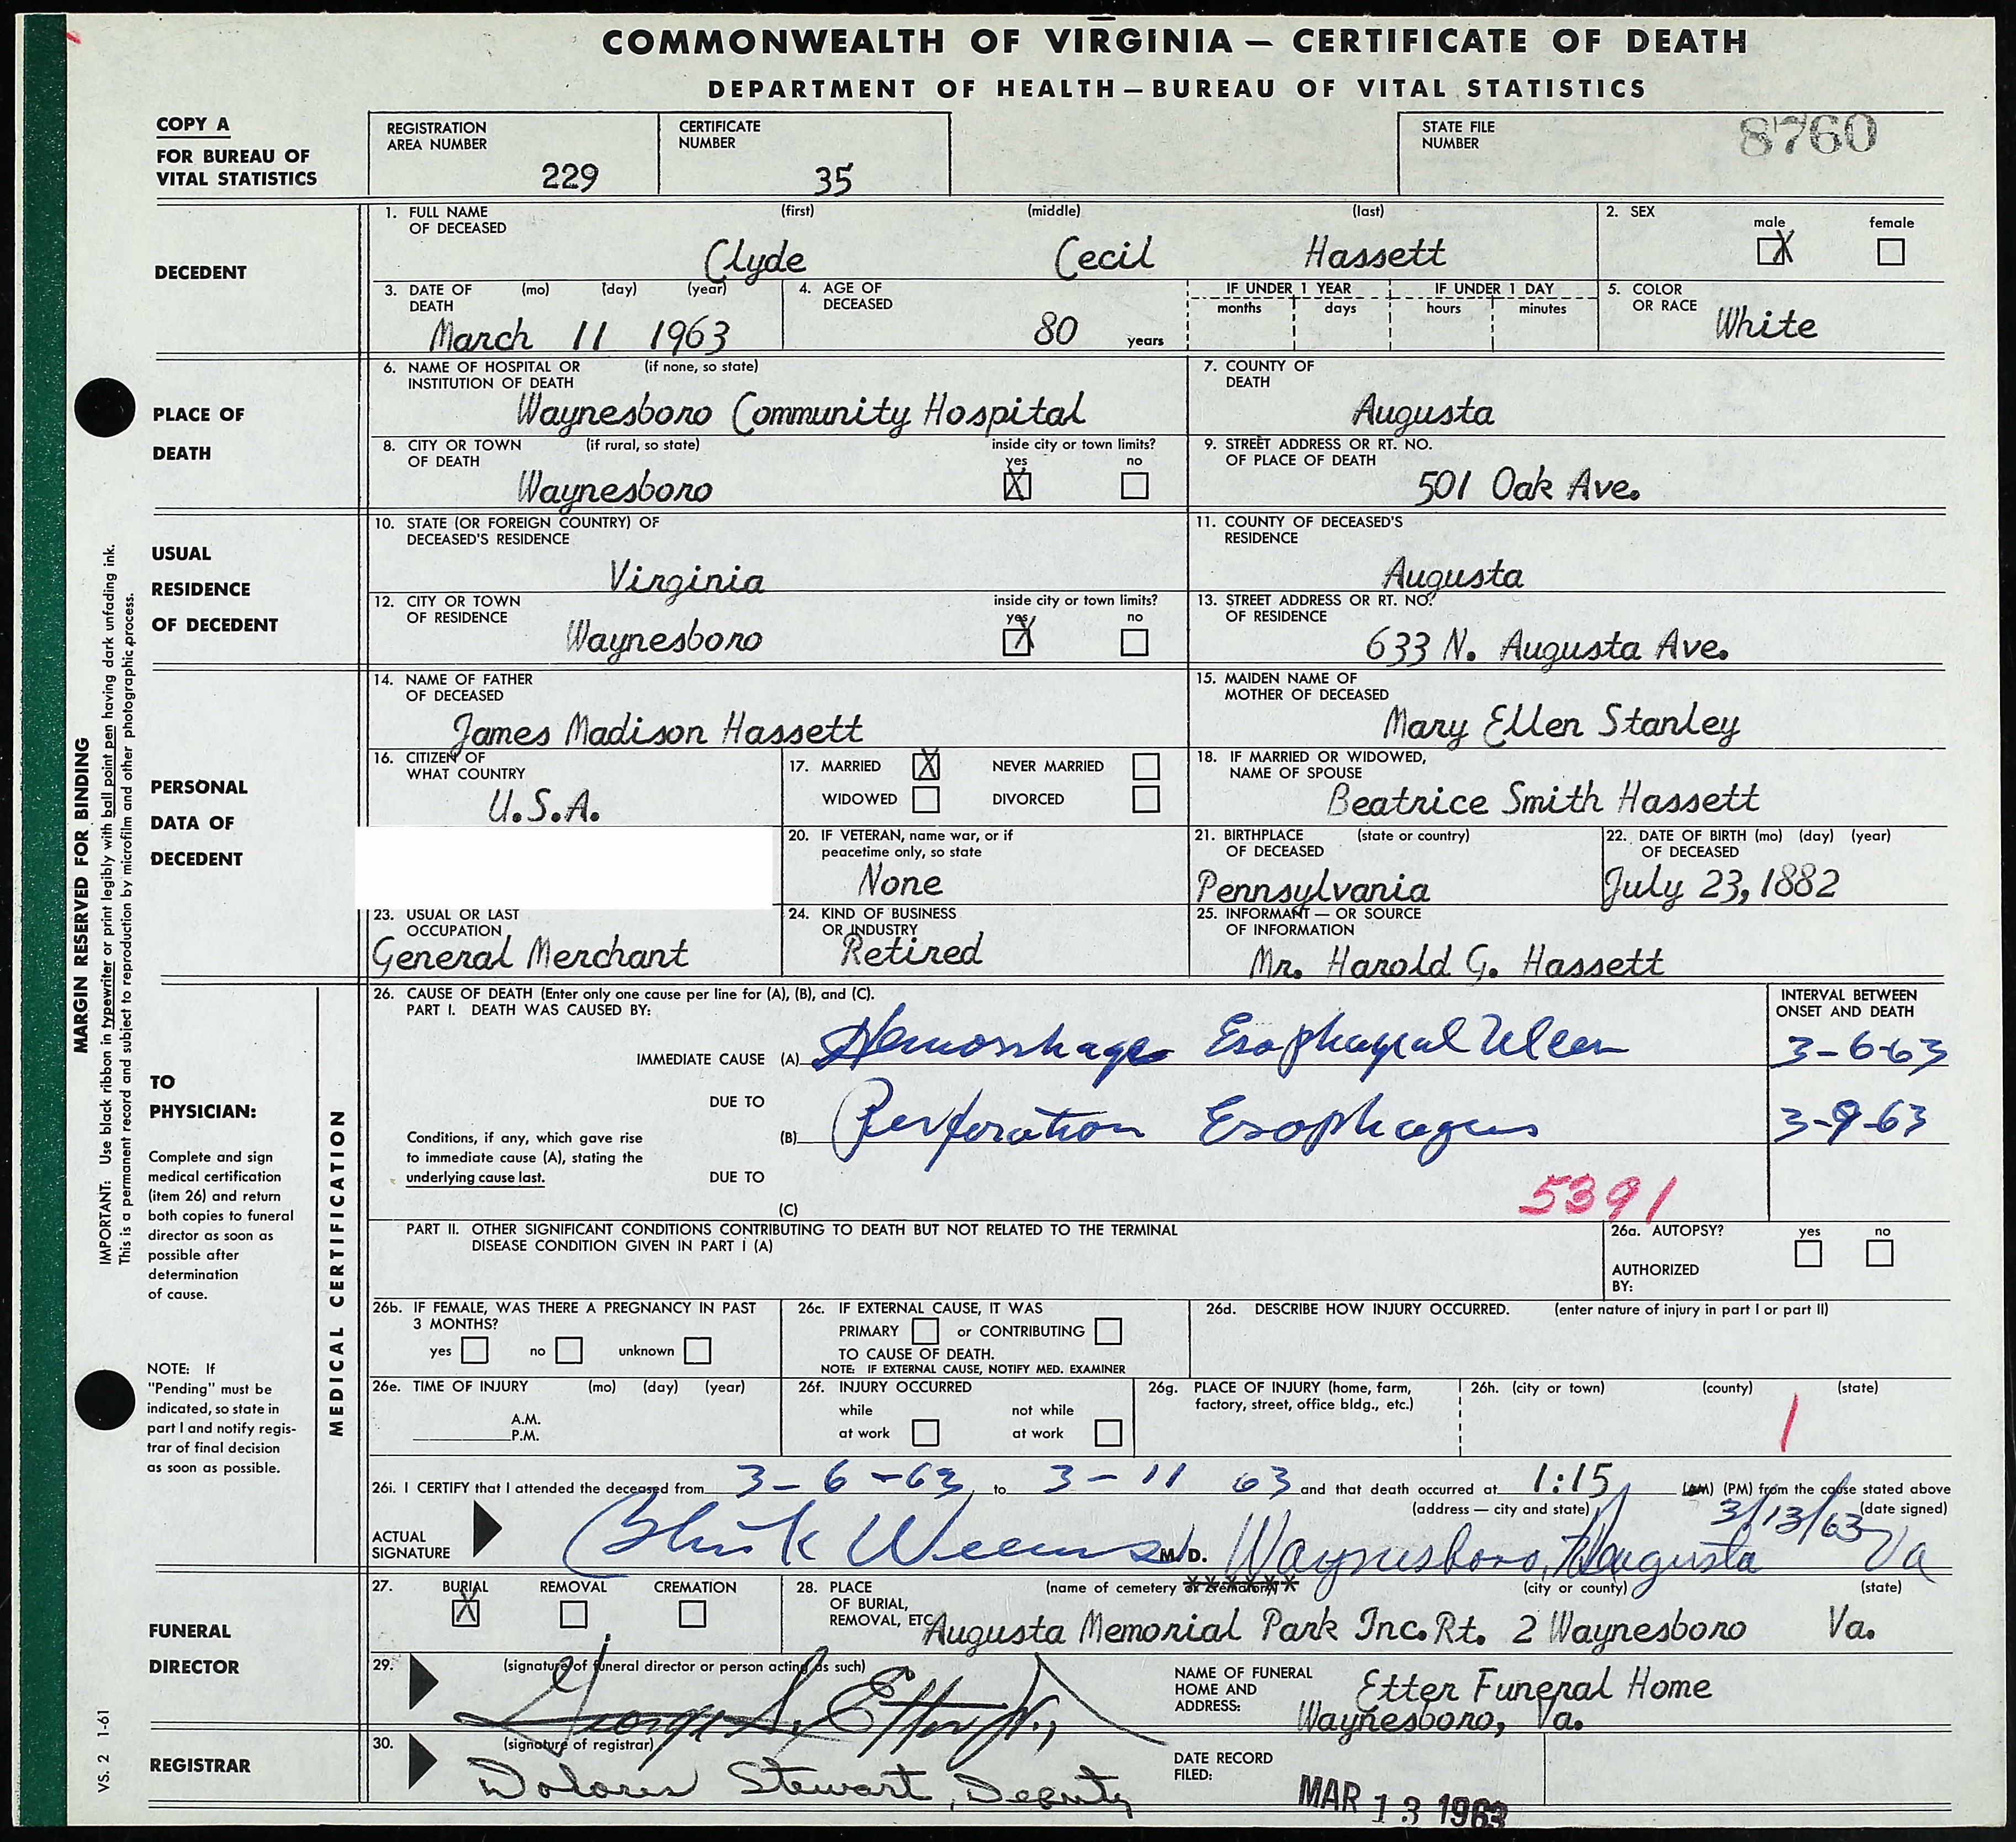 COMMONWEALTH OF VIRGINIA — CERTIFICATE OF DEATH
DEPARTMENT OF HEALTH — BUREAU OF VITAL STATISTICS
COPY A
FOR BUREAU OF
VITAL STATISTICS
REGISTRATION
AREA NUMBER
229
CERTIFICATE
NUMBER
35
STATE FILE
NUMBER
8760
DECEDENT
1. FULL NAME (first) (middle) (last)
OF DECEASED
Clyde Cecil Hassett
2. SEX
male female
X
3. DATE OF (mo) (day) (year)
DEATH
March 11 1963
4. AGE OF
DECEASED
80 years
IF UNDER 1 YEAR IF UNDER 1 DAY
months days hours minutes
5. COLOR
OR RACE
White
PLACE OF
DEATH
6. NAME OF HOSPITAL OR (if none, so state)
INSTITUTION OF DEATH
Waynesboro Community Hospital
7. COUNTY OF
DEATH
Augusta
8. CITY OR TOWN (if rural, so state) inside city or town limits?
OF DEATH yes no
Waynesboro X
9. STREET ADDRESS OR RT. NO.
OF PLACE OF DEATH
501 Oak Ave.
USUAL
RESIDENCE
OF DECEDENT
10. STATE (OR FOREIGN COUNTRY) OF
DECEASED'S RESIDENCE
Virginia
11. COUNTY OF DECEASED'S
RESIDENCE
Augusta
12. CITY OR TOWN inside city or town limits?
OF RESIDENCE yes no
Waynesboro X
13. STREET ADDRESS OR RT. NO.
OF RESIDENCE
633 N. Augusta Ave.
PERSONAL
DATA OF
DECEDENT
14. NAME OF FATHER
OF DECEASED
James Madison Hassett
15. MAIDEN NAME OF
MOTHER OF DECEASED
Mary Ellen Stanley
16. CITIZEN OF
WHAT COUNTRY
U.S.A.
17. MARRIED X NEVER MARRIED
WIDOWED DIVORCED
18. IF MARRIED OR WIDOWED,
NAME OF SPOUSE
Beatrice Smith Hassett
20. IF VETERAN, name war, or if
peacetime only, so state
None
21. BIRTHPLACE (state or country)
OF DECEASED
Pennsylvania
22. DATE OF BIRTH (mo) (day) (year)
OF DECEASED
July 23, 1882
23. USUAL OR LAST
OCCUPATION
General Merchant
24. KIND OF BUSINESS
OR INDUSTRY
Retired
25. INFORMANT — OR SOURCE
OF INFORMATION
Mr. Harold G. Hassett
MARGIN RESERVED FOR BINDING
IMPORTANT: Use black ribbon in typewriter or print legibly with ball point pen having dark unfading ink.
This is a permanent record and subject to reproduction by microfilm and other photographic process.
VS. 2 1-61
TO
PHYSICIAN:
Complete and sign
medical certification
(item 26) and return
both copies to funeral
director as soon as
possible after
determination
of cause.
NOTE: If
"Pending" must be
indicated, so state in
part I and notify regis-
trar of final decision
as soon as possible.
MEDICAL CERTIFICATION
26. CAUSE OF DEATH (Enter only one cause per line for (A), (B), and (C).
PART I. DEATH WAS CAUSED BY:
INTERVAL BETWEEN
ONSET AND DEATH
IMMEDIATE CAUSE (A) Hemorrhage Esophageal Ulcer 3-6-63
DUE TO
(B) Perforation Esophagus 3-9-63
Conditions, if any, which gave rise
to immediate cause (A), stating the
underlying cause last.
DUE TO
(C)
5391
PART II. OTHER SIGNIFICANT CONDITIONS CONTRIBUTING TO DEATH BUT NOT RELATED TO THE TERMINAL
DISEASE CONDITION GIVEN IN PART I (A)
26a. AUTOPSY? yes no
AUTHORIZED
BY:
26b. IF FEMALE, WAS THERE A PREGNANCY IN PAST
3 MONTHS?
yes no unknown
26c. IF EXTERNAL CAUSE, IT WAS
PRIMARY or CONTRIBUTING
TO CAUSE OF DEATH.
NOTE: IF EXTERNAL CAUSE, NOTIFY MED. EXAMINER
26d. DESCRIBE HOW INJURY OCCURRED. (enter nature of injury in part I or part II)
26e. TIME OF INJURY (mo) (day) (year)
A.M.
P.M.
26f. INJURY OCCURRED
while not while
at work at work
26g. PLACE OF INJURY (home, farm,
factory, street, office bldg., etc.)
26h. (city or town) (county) (state)
1
26i. I CERTIFY that I attended the deceased from 3-6-63 to 3-11 63 and that death occurred at 1:15 (AM) (PM) from the cause stated above
(address — city and state) (date signed)
3/13/63
ACTUAL
SIGNATURE
Weems M. D. Waynesboro, Augusta Va
FUNERAL
DIRECTOR
27. BURIAL REMOVAL CREMATION
X
28. PLACE (name of cemetery or crematory) (city or county) (state)
OF BURIAL,
REMOVAL, ETC.
Augusta Memorial Park Inc. Rt. 2 Waynesboro Va.
29. (signature of funeral director or person acting as such)
George S. Etter Jr.,
NAME OF FUNERAL
HOME AND
ADDRESS:
Etter Funeral Home
Waynesboro, Va.
REGISTRAR
30. (signature of registrar)
Dolores Stewart, Deputy
DATE RECORD
FILED:
MAR 13 1963